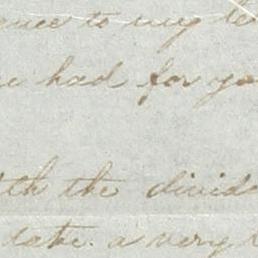 ence to my le
had for yo
ith the divide
date. a very